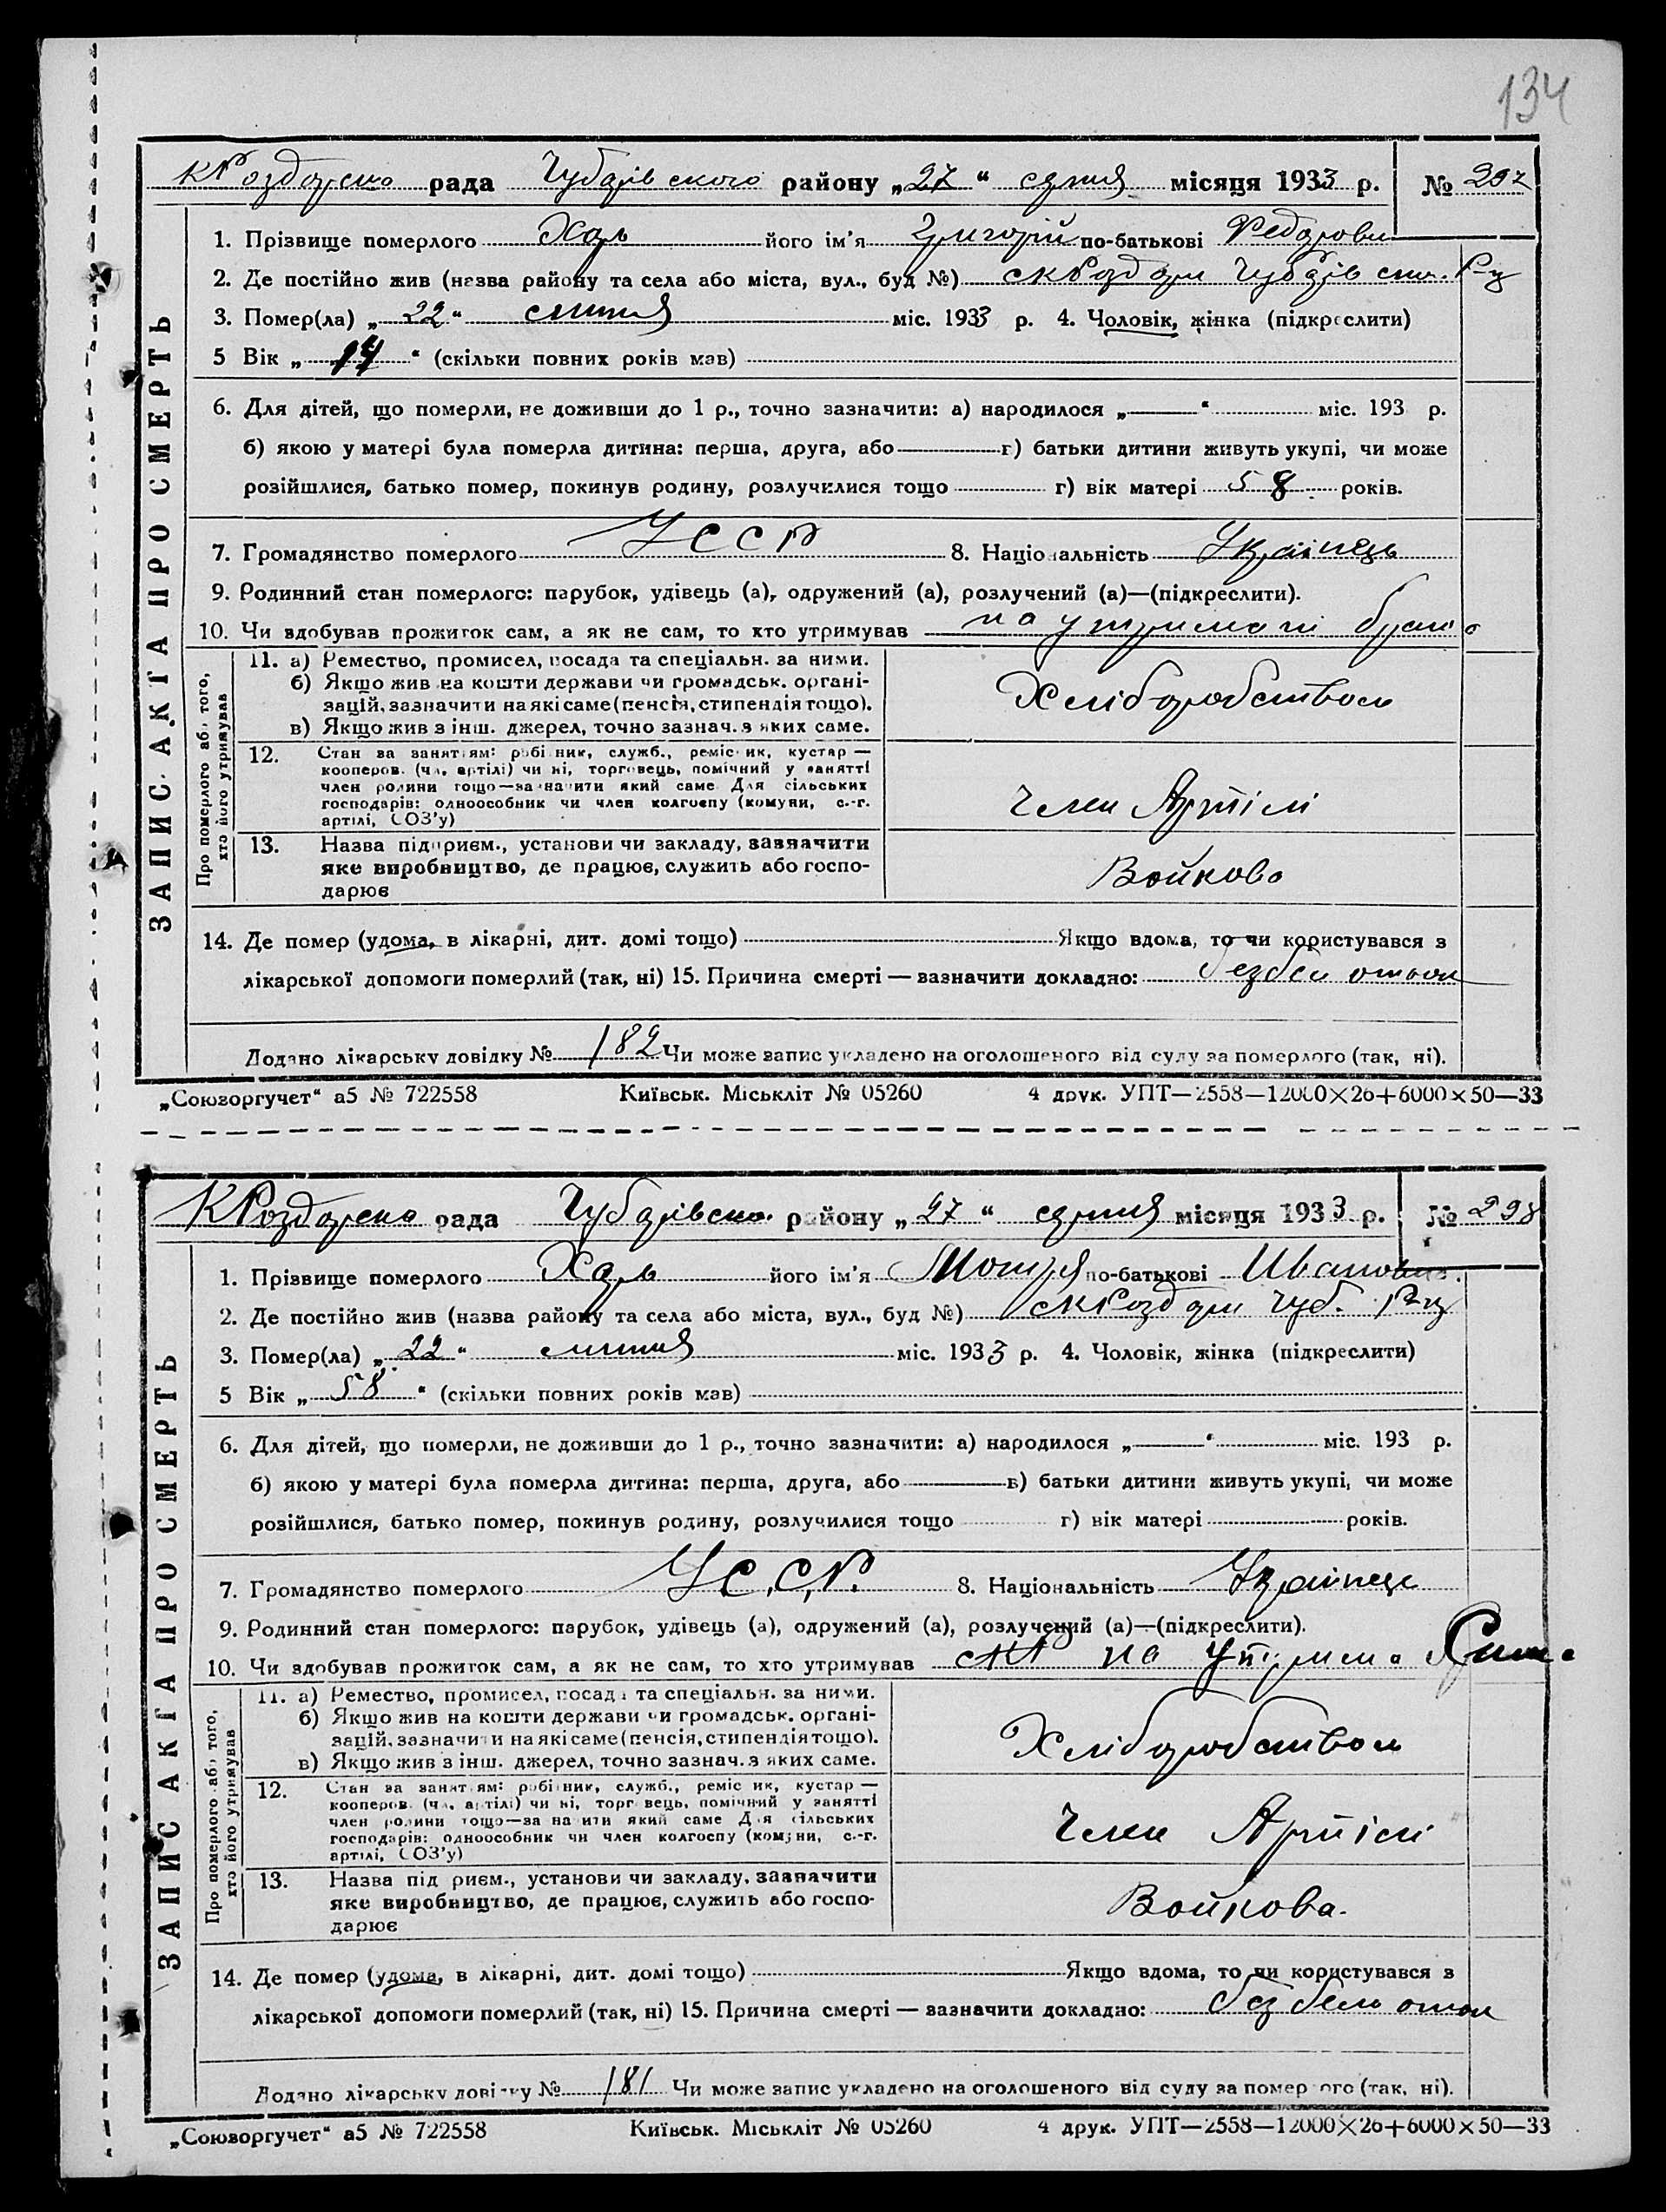 134
КРоздорська рада Чубарівського району „27“ серпня місяця 1933 р. № 297
1. Прізвище померлого Харь його ім'я Григорій по-батькові Федорови
2. Де постійно жив (назва району та села або міста, вул., буд №) с КРоздори Чубарівськ. Р-у
3. Помер(ла) „22“ липня міс. 1933 р. 4. Чоловік, жінка (підкреслити)
5 Вік „14“ (скільки повних років мав)
6. Для дітей, що померли, не доживши до 1 р., точно зазначити: а) народилося „ “ міс. 193 р.
б) якою у матері була померла дитина: перша, друга, або г) батьки дитини живуть укупі, чи може
розійшлися, батько помер, покинув родину, розлучилися тощо г) вік матері 58 років.
7. Громадянство померлого УССР 8. Національність Українець
9. Родинний стан померлого: парубок, удівець (а), одружений (а), розлучений (а)—(підкреслити).
10. Чи здобував прожиток сам, а як не сам, то хто утримував на утримані брата
ЗАПИС АКТА ПРО СМЕРТЬ
Про померлого або того,
хто його утримував
11. а) Ремество, промисел, посада та спеціальн. за ними.
б) Якщо жив на кошти держави чи громадськ. органі-
зацій, зазначити на які саме (пенсія, стипендія тощо).
в) Якщо жив з інш. джерел, точно зазнач. з яких саме.
Хліборобством
12. Стан за заняттям: робітник, служб., реміс ик, кустар —
кооперов. (чл. артілі) чи ні, торговець, помічний у занятті
член родини тощо—зазначити який саме Для сільських
господарів: одноособник чи член колгоспу (комуни, с.-г.
артілі, СОЗ'у)
Член Артілі
13. Назва підприєм., установи чи закладу, зазначити
яке виробництво, де працює, служить або госпо-
дарює
Войкова
14. Де помер (удома, в лікарні, дит. домі тощо) Якщо вдома, то чи користувався з
лікарської допомоги померлий (так, ні) 15. Причина смерті — вазначити докладно: безбел отьок
Додано лікарську довідку № 182 Чи може запис укладено на оголошеного від суду за померлого (так, ні).
„Союзоргучет“ а5 № 722558 Київськ. Міськліт № 05260 4 друк. УПТ—2558—12000×26+6000×50—33
КРоздорська рада Чубарівськ. району „27“ серпня місяця 1933 р. № 298
1. Прізвище померлого Харь його ім'я Мотря по-батькові Ивановна
2. Де постійно жив (назва району та села або міста, вул., буд №) с КРоздори Чуб. Р-у
3. Помер(ла) „22“ липня міс. 1933 р. 4. Чоловік, жінка (підкреслити)
5 Вік „58“ (скільки повних років мав)
6. Для дітей, що померли, не доживши до 1 р., точно зазначити: а) народилося „ “ міс. 193 р.
б) якою у матері була померла дитина: перша, друга, або в) батьки дитини живуть укупі, чи може
розійшлися, батько помер, покинув родину, розлучилися тощо г) вік матері років.
7. Громадянство померлого У.С.С.Р. 8. Національність Українець
9. Родинний стан померлого: парубок, удівець (а), одружений (а), розлучений (а)—(підкреслити).
10. Чи здобував прожиток сам, а як не сам, то хто утримував на утрима Сина
ЗАПИС АКТА ПРО СМЕРТЬ
Про померлого або того,
хто його утримував
11. а) Ремество, промисел, посада та спеціальн. за ними.
б) Якщо жив на кошти держави чи громадськ. органі-
зацій, зазначити на які саме (пенсія, стипендія тощо).
в) Якщо жив з інш. джерел, точно зазнач. з яких саме.
Хліборобством
12. Стан за заняттям: робітник, служб., реміс ик, кустар —
кооперов. (чл. артілі) чи ні, торговець, помічний у занятті
член родини тощо—зазначити який саме Для сільських
господарів: одноособник чи член колгоспу (комуни, с.-г.
артілі, СОЗ'у)
Член Артілі
13. Назва підприєм., установи чи закладу, зазначити
яке виробництво, де працює, служить або госпо-
дарює
Войкова.
14. Де помер (удома, в лікарні, дит. домі тощо) Якщо вдома, то чи користувався з
лікарської допомоги померлий (так, ні) 15. Причина смерті — вазначити докладно: без бел оток
Додано лікарську довідку № 181 Чи може запис укладено на оголошеного від суду за померлого (так, ні).
„Союзоргучет“ а5 № 722558 Київськ. Міськліт № 05260 4 друк. УПТ—2558—12000×26+6000×50—33